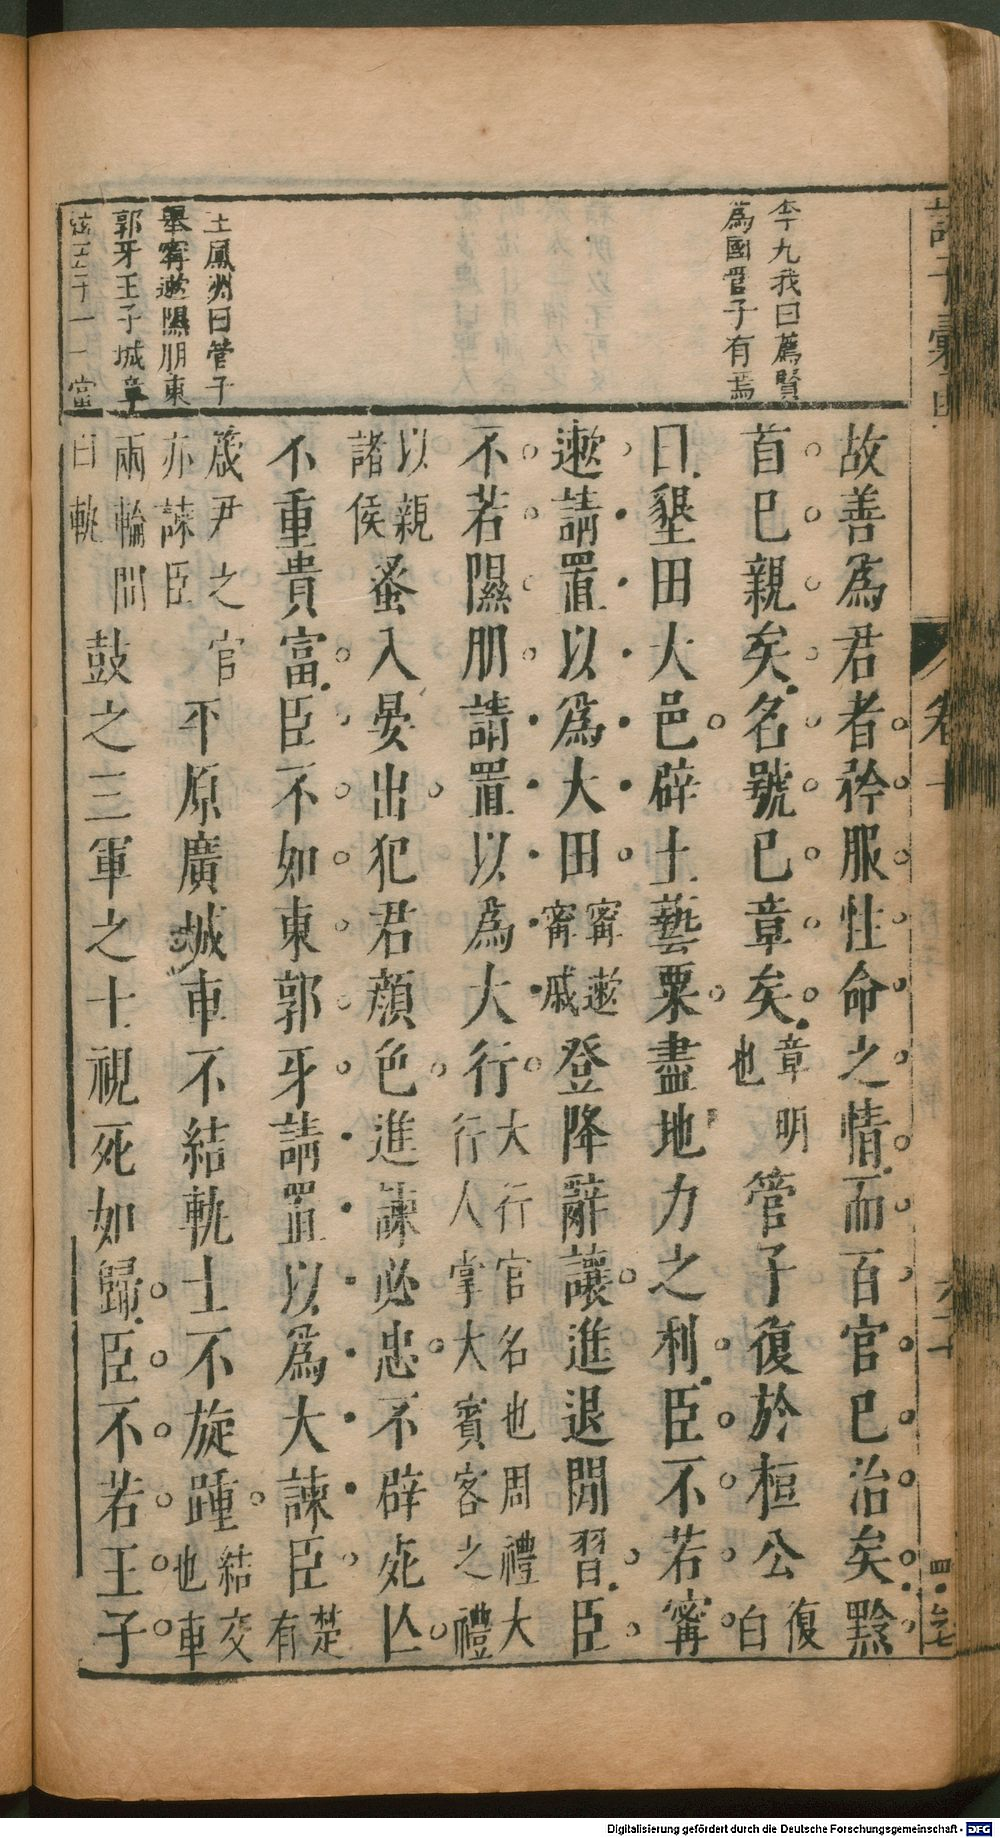 李九我曰薦賢
為國管子有焉
王鳳洲曰管子
舉甯遫隰朋東
郭牙王子城章
故善爲君者矜服性命之情而百官已治矣黔
首已親矣名號已章矣章明也管子復於桓公復白
曰墾田大邑辟土藝粟盡地力之利臣不若甯
遫請置以爲大田甯遫甯戚登降辭讓進退閒習臣
不若隰朋請置以爲大行大行官名也周禮大行人掌大賓客之禮
以親諸侯蚤入晏出犯君顏色進諫必忠不辟死亾
不重貴富臣不如東郭牙請置以爲大諫臣楚有
葴尹之官亦諫臣平原廣城車不結軌士不旋踵結交也車
兩輪間曰軌鼓之三軍之士視死如歸臣不若王子
Digitalisierung gefördert durch die Deutsche Forschungsgemeinschaft - DFG